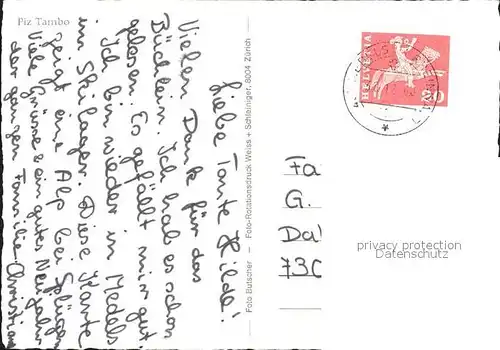 Piz Tambo
Liebe Tante Hilde!
Vielen Dank für das
Büchlein. Ich hab es schon
gelesen. Es gefällt mir gut.
Ich bin wieder in Medels
im Skilager. Diese Karte
zeigt eine Alp bei Splügen
Viele Grüsse & ein gutes Neujahr
der ganzen Familie Christian
Foto Butscher — Foto-Rotationsdruck Weiss + Schleiniger, 8004 Zürich
HELVETIA
20
Fa
G.
Da
730
privacy protection
Datenschutz